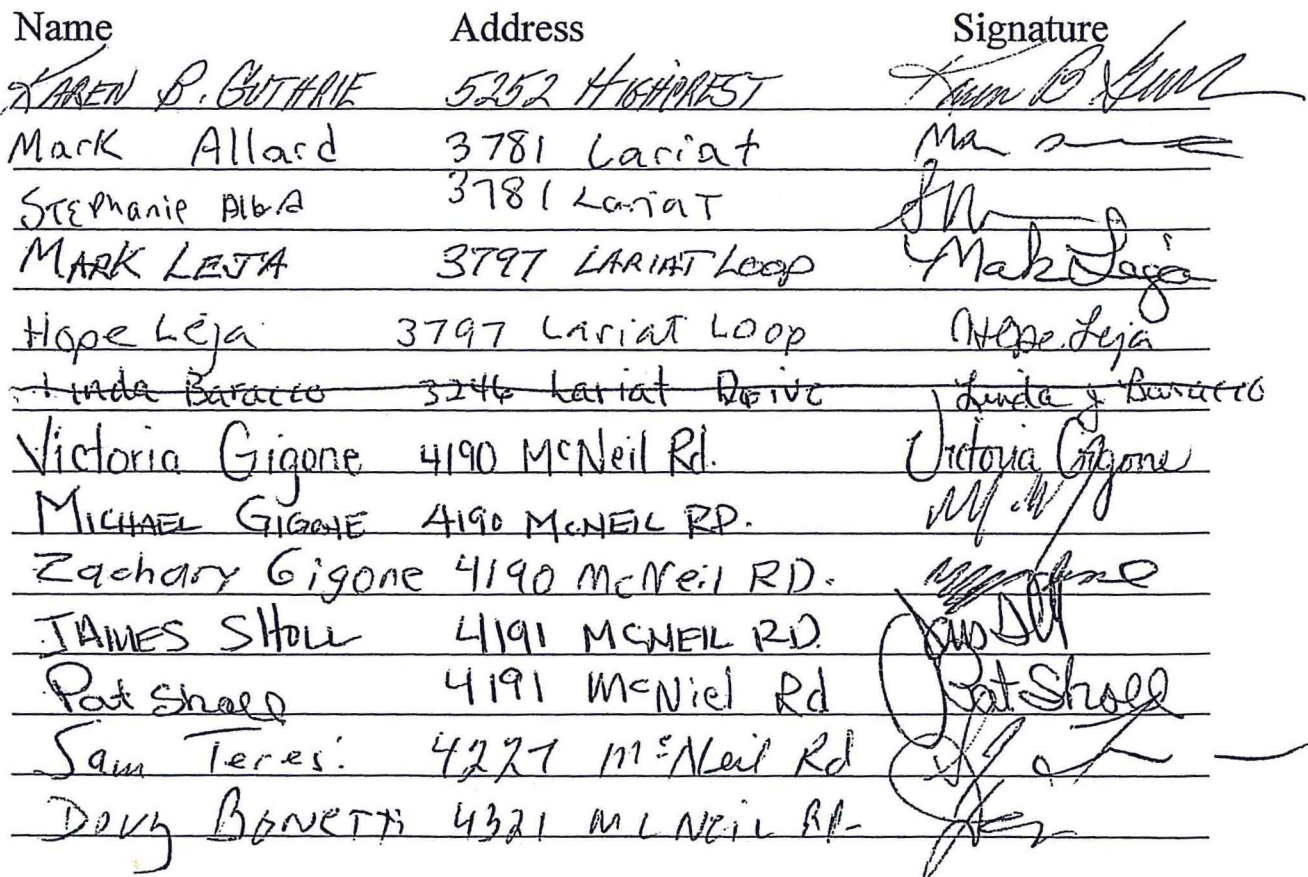 Name Address Signature
KAREN B. GUTHRIE 5252 HIGHCREST Karen B
Mark Allard 3781 Lariat
STEPhanie AlbA 3781 LariaT
MARK LEJA 3797 LARIAT LOOP Mark Leja
Hope Leja 3797 Lariat Loop Hope Leja
Linda Baracco 3246 Lariat Drive Linda J Baracco
Victoria Gigone 4190 McNeil Rd. Victoria Gigone
MICHAEL GIGONE 4190 McNEIL RD.
Zachary Gigone 4190 McNeil RD.
JAMES SHOLL 4191 MCNEIL RD.
Pat Sholl 4191 McNiel Rd Pat Sholl
Sam Teresi 4227 McNeil Rd
Doug BONETTI 4321 McNeil Rd.